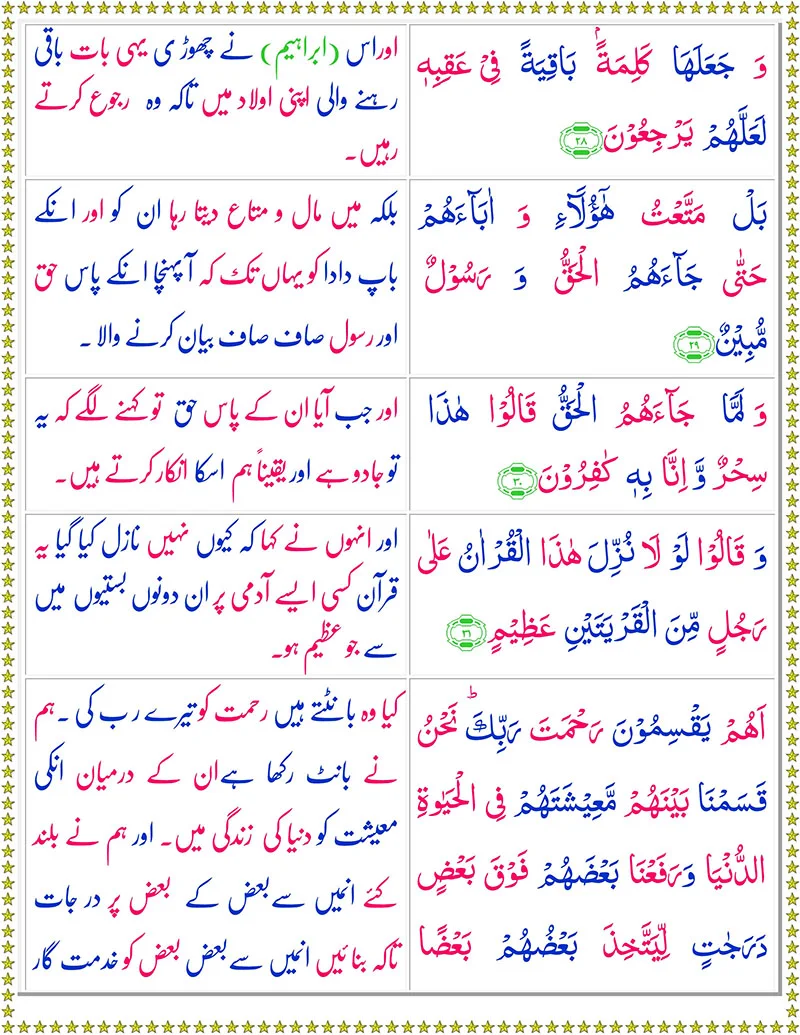 وَ جَعَلَهَا كَلِمَةًۢ بَاقِيَةً فِىْ عَقِبِهٖ
لَعَلَّهُمْ يَرْجِعُوْنَ ۲۸
اوراس (ابراہیم) نے چھوڑی یہی بات باقی
رہنے والی اپنی اولاد میں تاکہ وہ رجوع کرتے
رہیں۔
بَلْ مَتَّعْتُ هٰٓؤُلَآءِ وَ اٰبَآءَهُمْ
حَتّٰى جَآءَهُمُ الْحَقُّ وَ رَسُوْلٌ
مُّبِيْنٌ ۲۹
بلکہ میں مال و متاع دیتا رہا ان کو اور انکے
باپ دادا کو یہاں تک کہ آپہنچا انکے پاس حق
اور رسول صاف صاف بیان کرنے والا۔
وَ لَمَّا جَآءَهُمُ الْحَقُّ قَالُوْا هٰذَا
سِحْرٌ وَّ اِنَّا بِهٖ كٰفِرُوْنَ ۳۰
اور جب آیا ان کے پاس حق تو کہنے لگے کہ یہ
تو جادو ہے اور یقیناً ہم اسکا انکار کرتے ہیں۔
وَ قَالُوْا لَوْ لَا نُزِّلَ هٰذَا الْقُرْاٰنُ عَلٰى
رَجُلٍ مِّنَ الْقَرْيَتَيْنِ عَظِيْمٍ ۳۱
اور انہوں نے کہا کہ کیوں نہیں نازل کیا گیا یہ
قرآن کسی ایسے آدمی پر ان دونوں بستیوں میں
سے جو عظیم ہو۔
اَهُمْ يَقْسِمُوْنَ رَحْمَتَ رَبِّكَ ؕ نَحْنُ
قَسَمْنَا بَيْنَهُمْ مَّعِيْشَتَهُمْ فِى الْحَيٰوةِ
الدُّنْيَا وَرَفَعْنَا بَعْضَهُمْ فَوْقَ بَعْضٍ
دَرَجٰتٍ لِّيَتَّخِذَ بَعْضُهُمْ بَعْضًا
کیا وہ بانٹتے ہیں رحمت کو تیرے رب کی ۔ہم
نے بانٹ رکھا ہے ان کے درمیان انکی
معیشت کو دنیا کی زندگی میں۔ اور ہم نے بلند
کئے انمیں سے بعض کے بعض پر درجات
تاکہ بنائیں انمیں سے بعض بعض کو خدمت گار